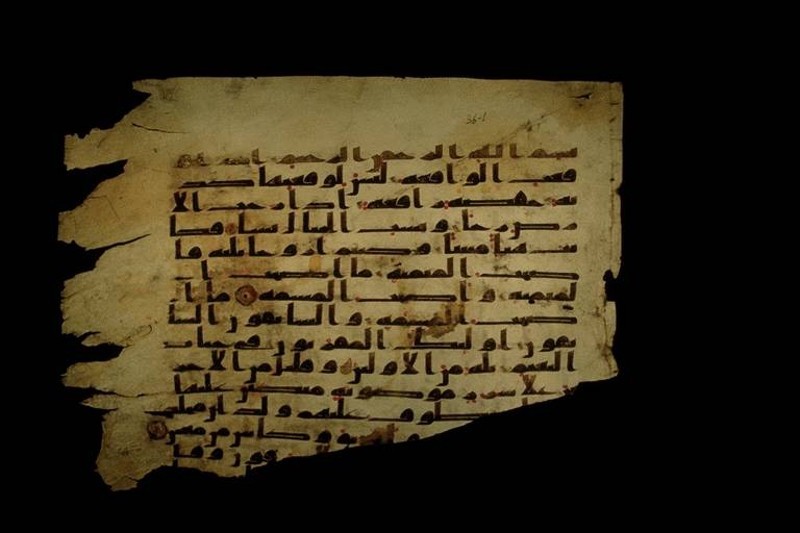 36-1
بسم الله الرحمن الرحيم اذا و
قعت الواقعة ليس لوقعتها كذ
بة خفضة رافعة اذا رجت الا
رض رجا وبست الجبال بسا فكا
نت هبا منبثا وكنتم ازوجا ثلثة فا
صحب الميمنة ما اصحب ا
لميمنة واصحب المشمة ما ا
صحب المشمة والسابقون السا
بقون اولئك المقربون في جنات
النعيم ثلة من الاولين وقليل من الا
على سرر موضونة متكئين عليها
يطوف عليهم ولدان مخلد
وكاس من معين
ون وفا